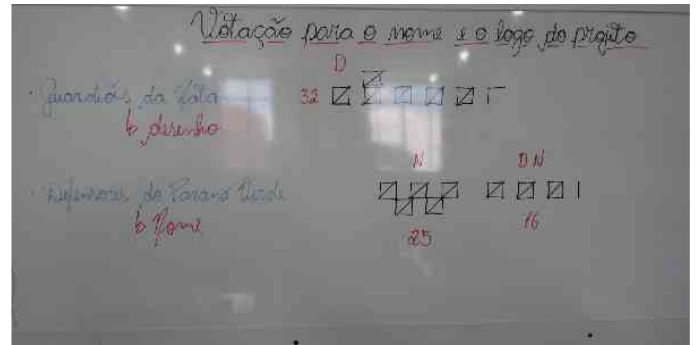 Votação para o nome e o logo do projeto
D
· Guardiões da Mata 32
↳ desenho
N DN
· Defensores do Paraná Verde
↳ Nome
25 16